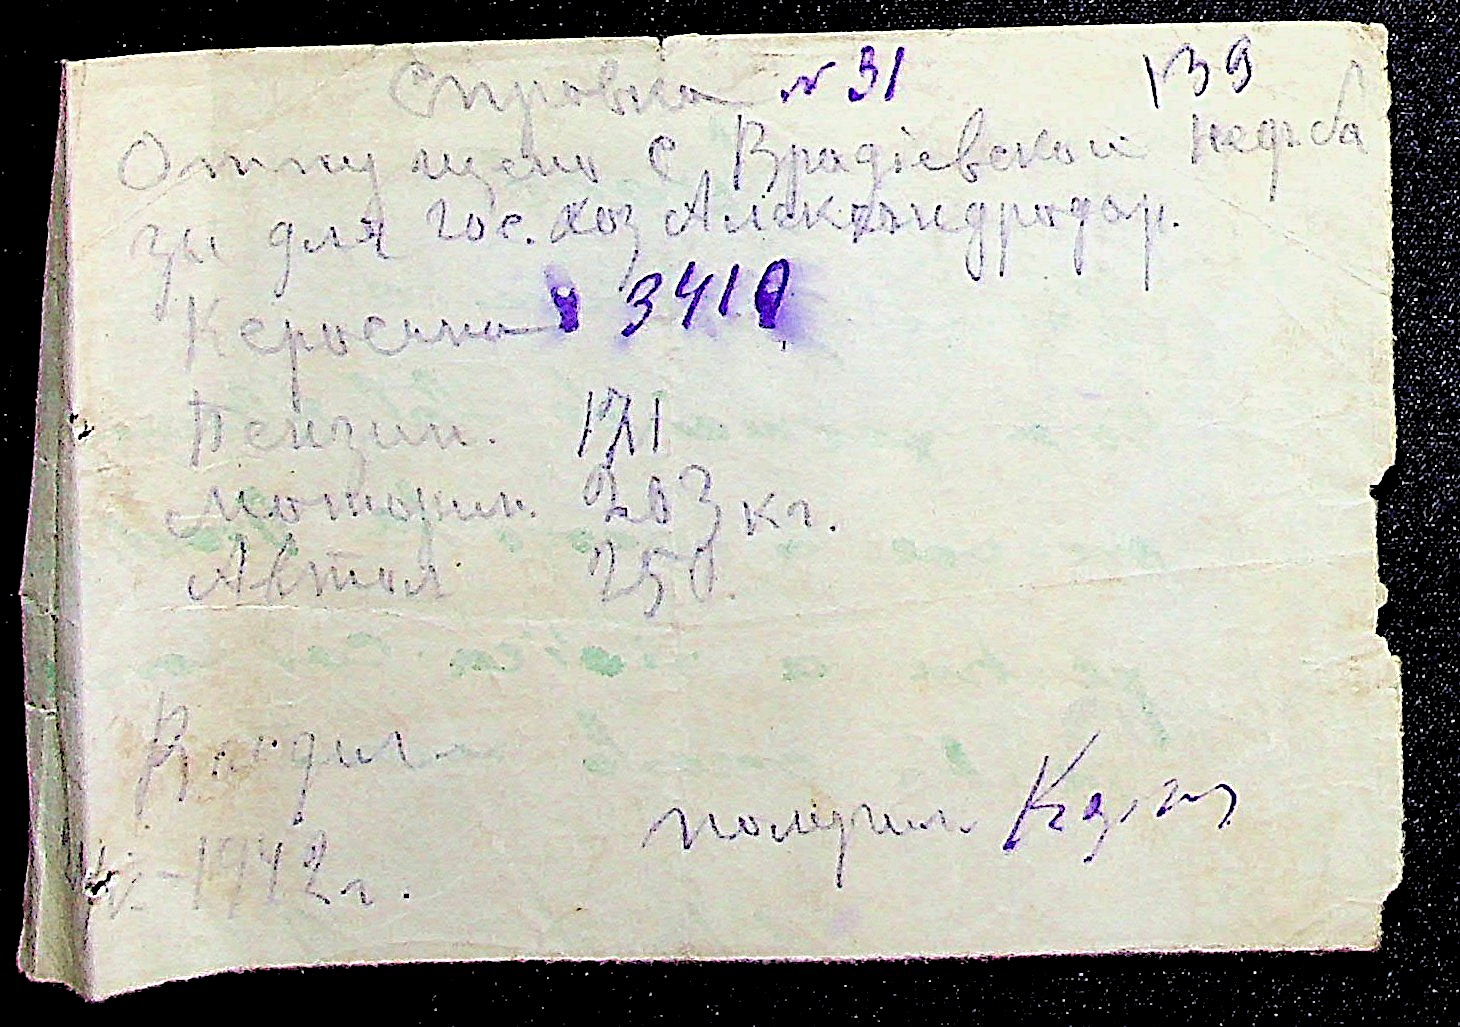 Справка № 31 139
Отпущено с Врадіевской Нефтба
зы для гос. хоз Александродар.
Керосина 3410
Бензин. 171
Моторин. 203 кг.
Автол 250
1942 г.
получил